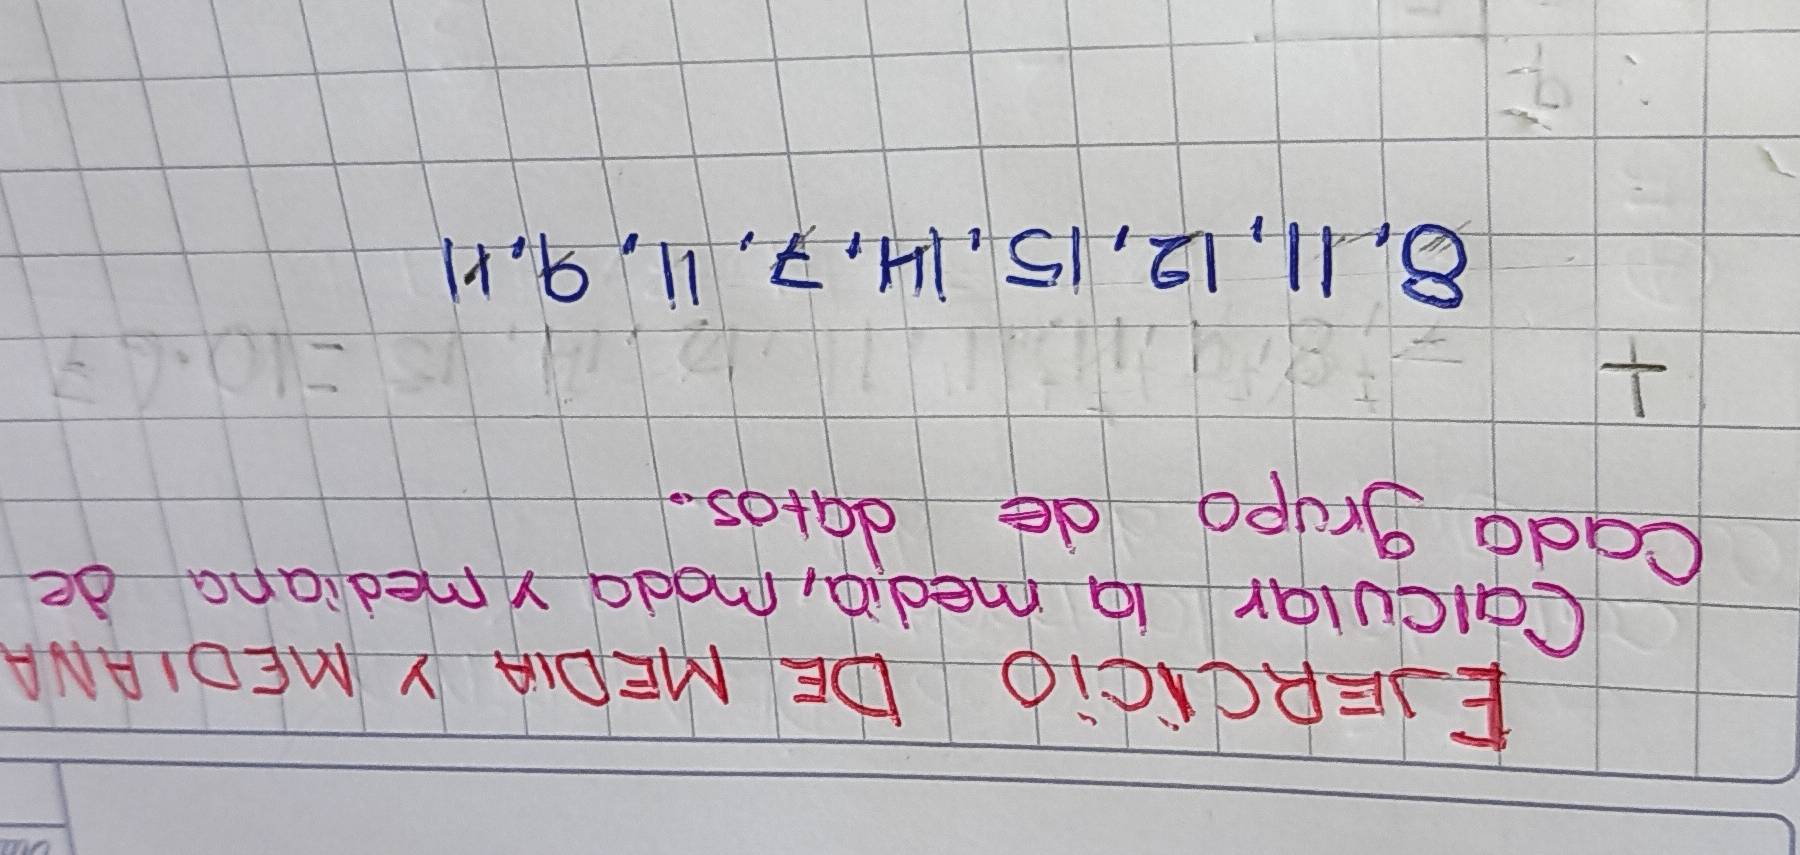 EJERCICIO DE MEDIA Y MEDIANA
Calcular la media, moda y mediana de
Cada grupo de datos.
8, 11, 12, 15, 14, 7, 11, 9, 11